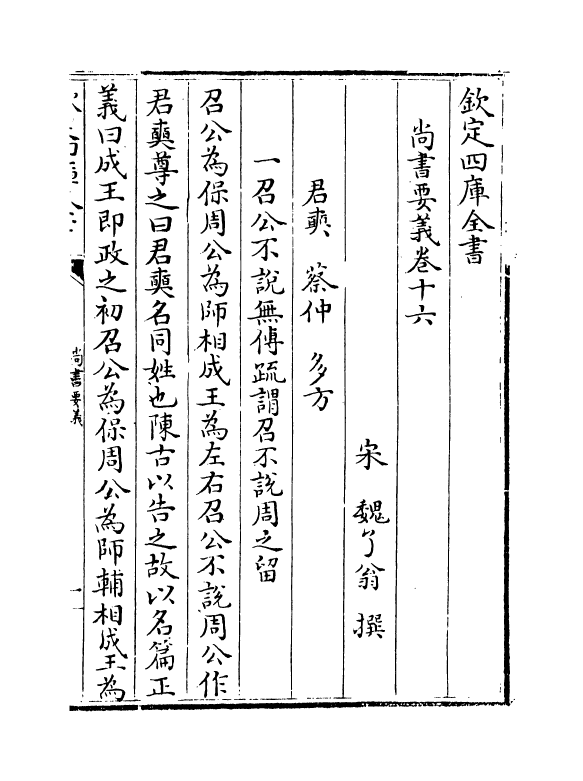 欽定四庫全書
尚書要義卷十六
宋 魏了翁 撰
君奭 蔡仲 多方
一召公不說無傳疏謂召不說周之留
召公為保周公為師相成王為左右召公不說周公作
君奭尊之曰君奭名同姓也陳古以告之故以名篇正
義曰成王即政之初召公為保周公為師輔相成王為
尚書要義
一